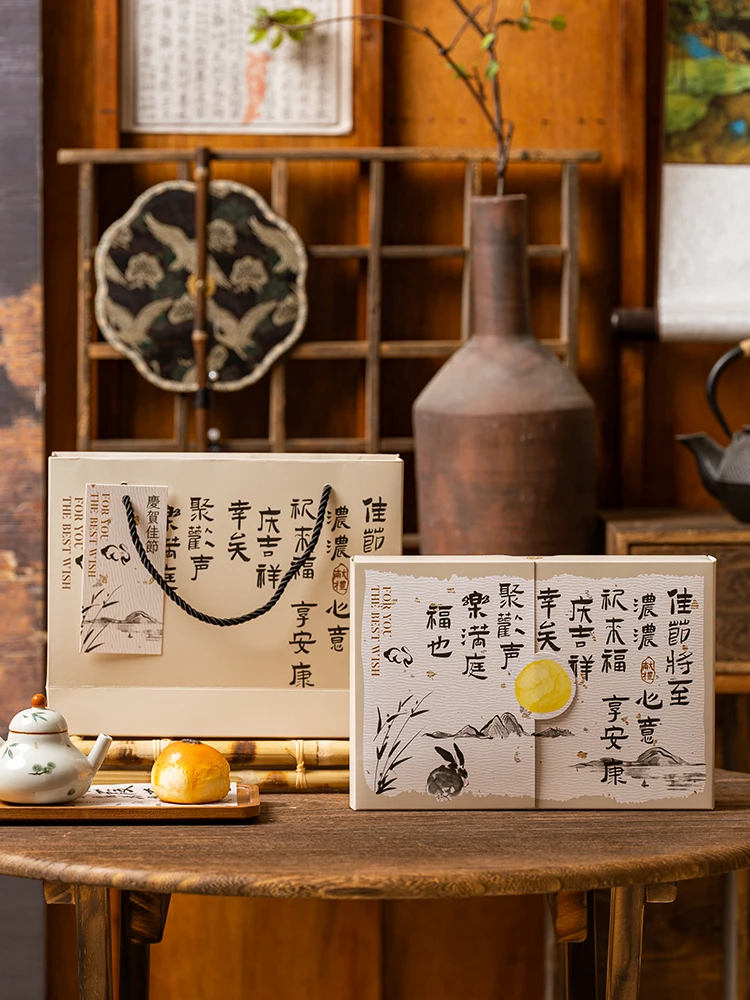 佳節
濃濃 心意
祝来福 享安康
庆吉祥
幸矣
聚歡声
樂満庭
慶賀佳節
FOR YOU
THE BEST WISH
FOR YOU
THE BEST WISH
佳節将至
濃濃 献禮 心意
祝来福 享安康
庆吉祥
幸矣
聚歡声
樂満庭
福也
FOR YOU
THE BEST WISH